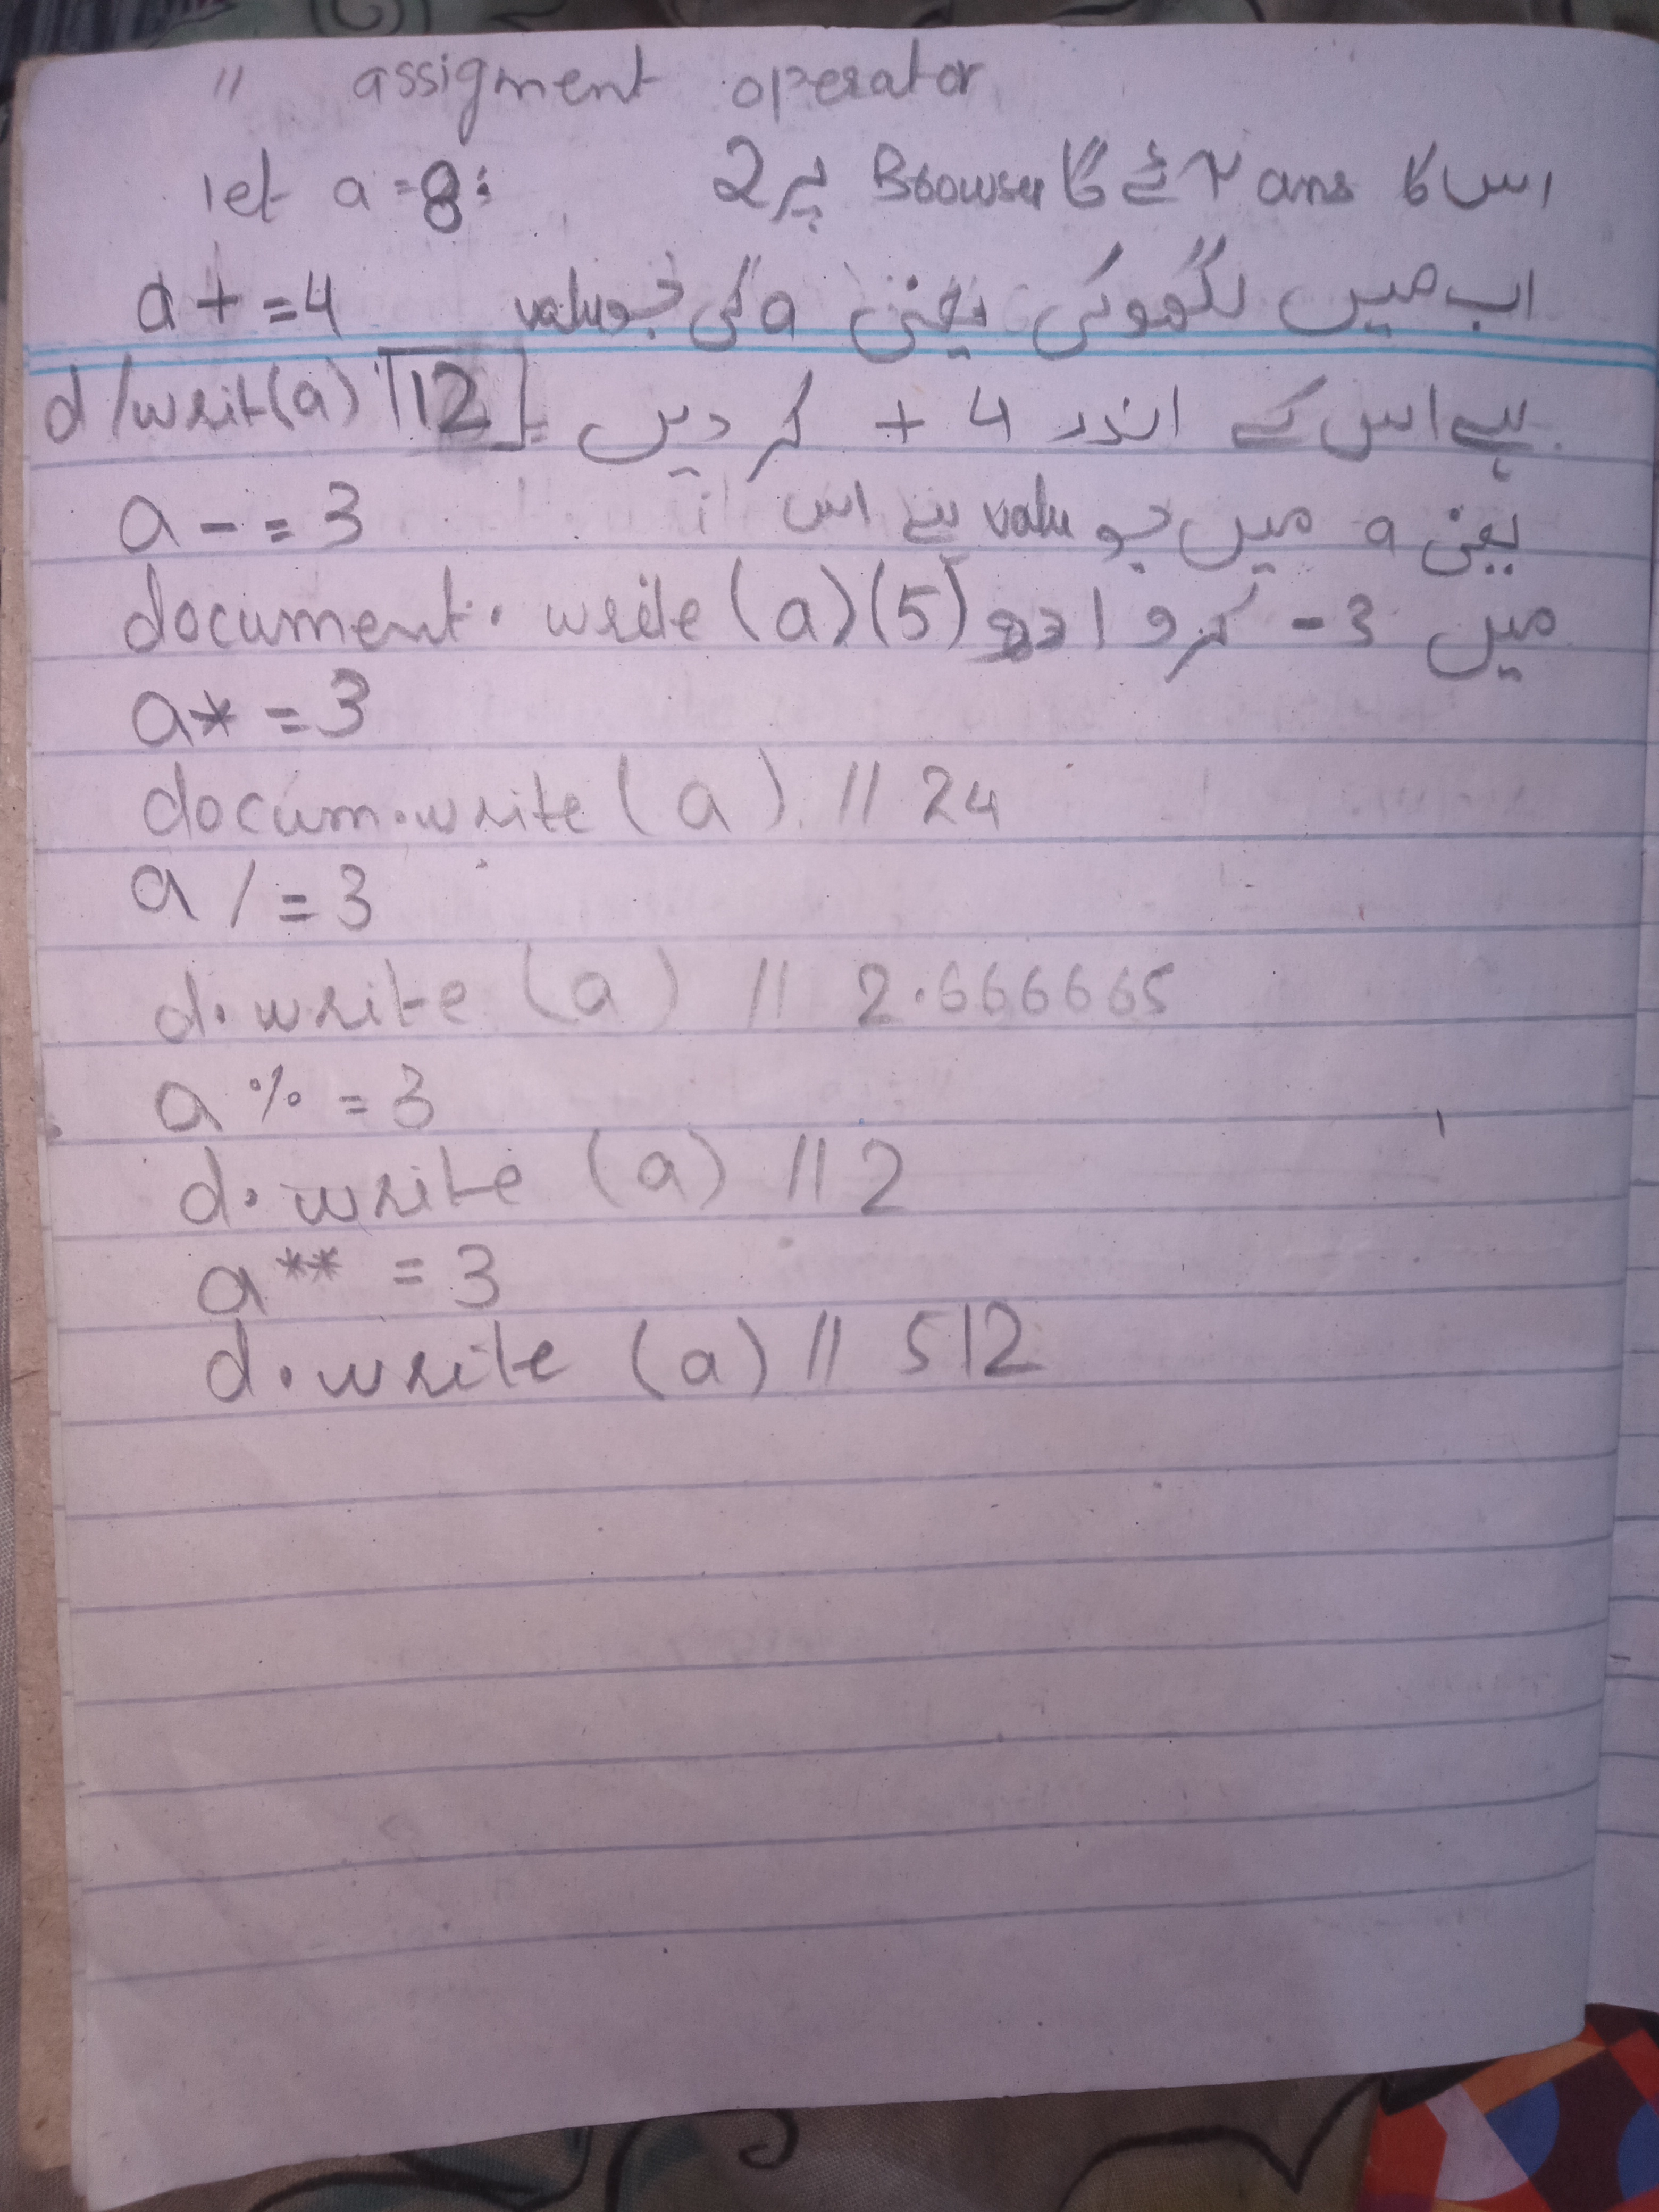 // assigment operator
let a = 8; اس کا ans آئے گا Browser پر 2
a + = 4 اب میں لکھوکی یعنی a کی جو valu
d/writ(a) 12 ہے اس کے اندر 4 + کر دیں
a - = 3 یعنی a میں جو valu ہے اس
document. write (a) (5) میں 3 - کرو
a * = 3
docum.write (a) // 24
a / = 3
d.write (a) // 2.666665
a % = 3
d.write (a) // 2
a ** = 3
d.write (a) // 512